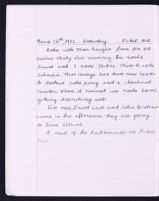 March 26th, 1932. Saturday. Picket Hill
Rode with Miss Knight from six till
twelve thirty this morning. She rode
Jewel and I rode Serbia. Miss K rode
Miss George has two new heads
a chestnut polo pony and a chestnut
hunter. When it rained we rode home,
getting drenching wet.
Two men, David Lush and Colin
came in the afternoon they are going
to
A meet of the Buckhounds at Picket
Post.